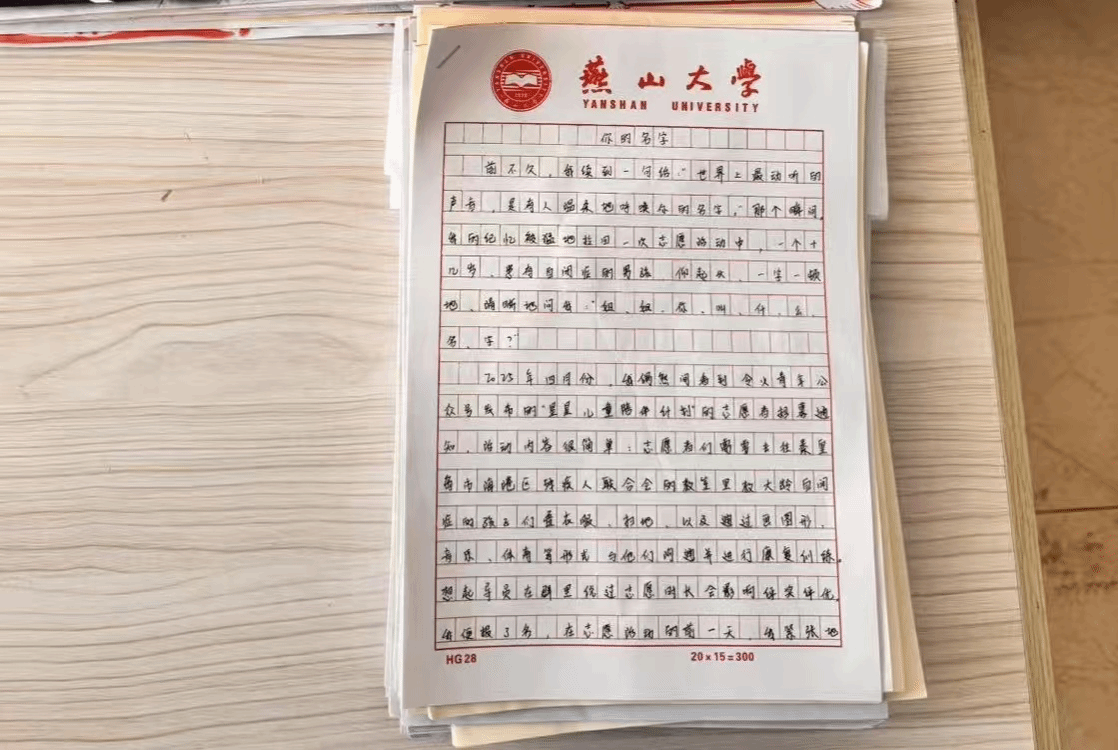 燕山大學
YANSHAN UNIVERSITY
你的名字
前不久，我读到一句话："世界上最动听的
声音，是有人温柔地呼唤你的名字。"那个瞬间，
我的记忆被猛地拉回一次志愿活动中，一个十
几岁、患有自闭症的男孩 仰起头，一字一顿
地、清晰地问我："姐、姐、你、叫、什、么、
名、字？"
2025年四月份，我偶然间看到 青年公
众号发布的"星星儿童陪伴计划"的志愿者招募通
知，活动内容很简单：志愿者们需要去往秦皇
岛市海港区残疾人联合会的教室里教大龄自闭
症的孩子们叠衣服、扫地，以及通过画图形、
音乐、体育等形式 与他们沟通并进行康复训练。
想起导员在群里说过志愿时长会影响评奖评优，
我便报了名，在志愿活动的前一天，我紧张地
HG28
20×15=300